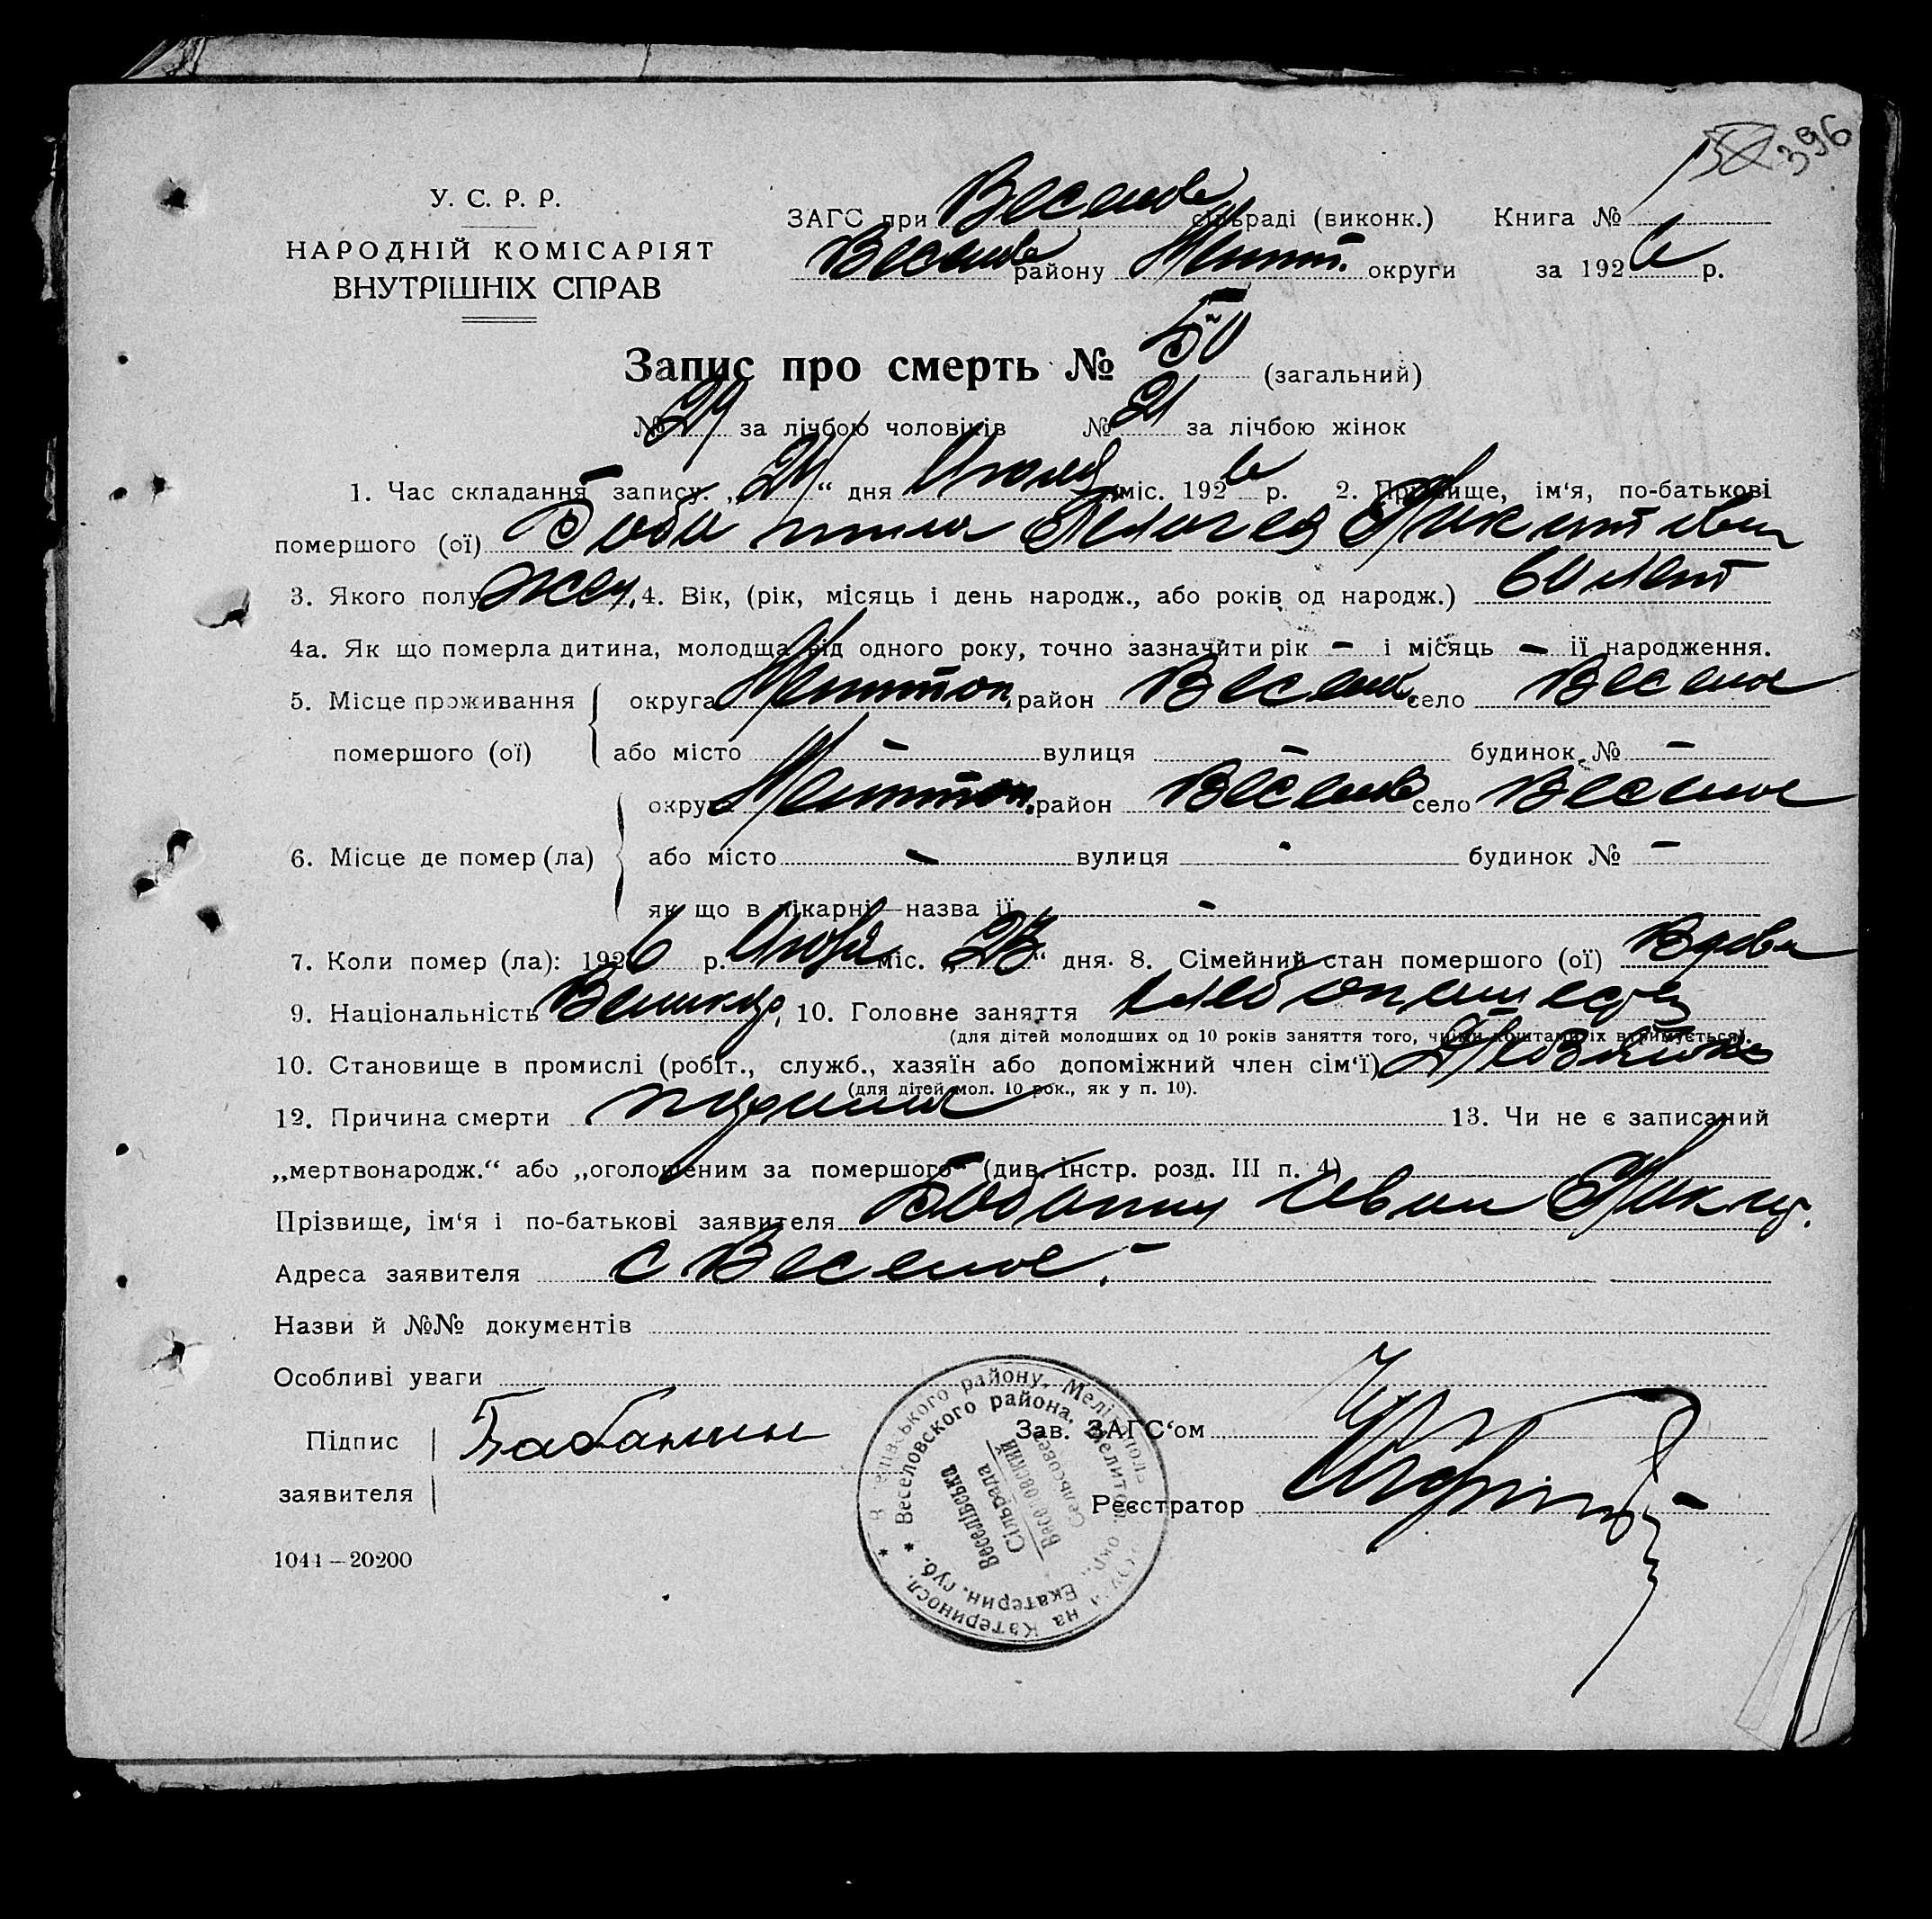 396
У. С. Р. Р.
НАРОДНІЙ КОМІСАРІЯТ
ВНУТРІШНІХ СПРАВ
ЗАГС при Веселов сільраді (виконк.) Книга №
Веселов району Мелит. округи за 1926 р.
Запис про смерть № 50 (загальний)
№ 29 за лічбою чоловіків № 21 за лічбою жінок
1. Час складання запису. „ “ дня Июля міс. 1926 р. 2. Прізвище, ім‘я, по-батькові
помершого (ої) Пелагея
3. Якого полу жен. 4. Вік, (рік, місяць і день народж., або років од народж.) 60 лет
4а. Як що померла дитина, молодща від одного року, точно зазначити рік – і місяць – її народження.
5. Місце проживання округа Мелитоп. район Веселов. село Веселое
помершого (ої) або місто – вулиця – будинок № –
округа Мелитоп. район Веселов село Веселое
6. Місце де помер (ла) або місто – вулиця - будинок № –
як що в лікарні—назва її -
7. Коли помер (ла): 1926 р. Июля міс. „ “ дня. 8. Сімейний стан помершого (ої) Вдова
9. Національність Великор. 10. Головне заняття хлебопашество
(для дітей молодших од 10 років заняття того, чиїми коштами їх втримується).
10. Становище в промислі (робіт., служб., хазяїн або допоміжний член сім‘ї) Хозяйка
(для дітей мол. 10 рок., як у п. 10).
12. Причина смерти 13. Чи не є записаний
„мертвонародж.“ або „оголошеним за помершого“ (див. інстр. розд. III п. 4)
Прізвище, ім‘я і по-батькові заявителя Бабанин Иван
Адреса заявителя с Веселое.
Назви й №№ документів
Особливі уваги
Підпис Бабанин Зав. ЗАГС‘ом
заявителя Реєстратор
Веселівського району, Меліто на Катериносл.
Веселовского района, Мелитоп. окр., Екатерин. губ.
Веселівська
Сільрада
Веселовский
Сельсовет
1041—20200